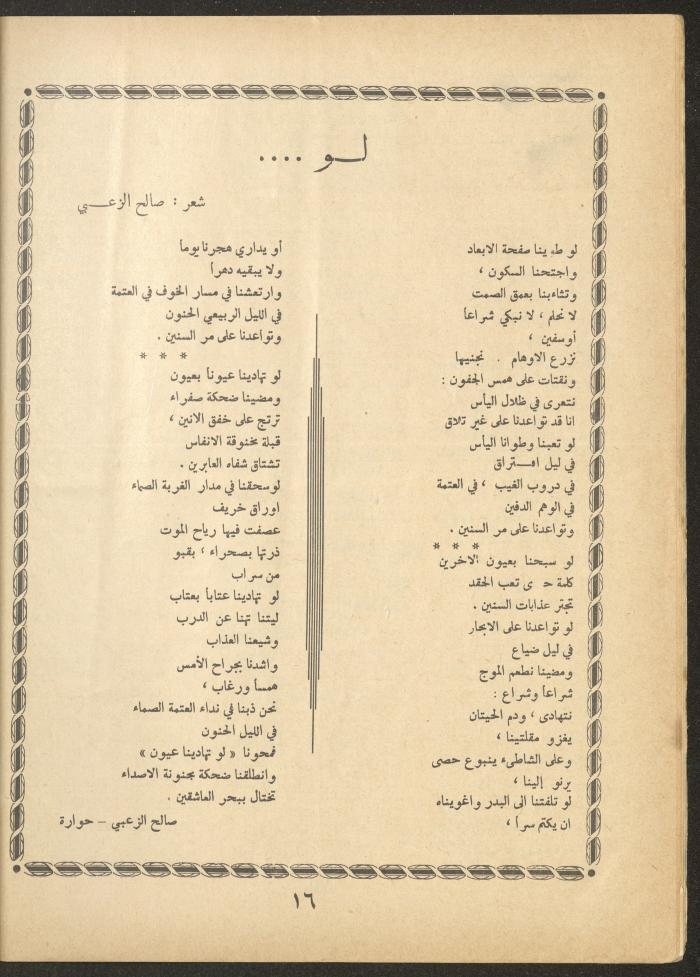 لو ....
شعر : صالح الزعبي
لو طوينا صفحة الابعاد
واجتحنا السكون ،
وتثاءبنا بعمق الصمت
لا نحلم ، لا نبكي شراعاً
أو سفين ،
نزرع الاوهام . نجنيها
ونقتات على همس الجفون :
نتعرى في ظلال اليأس
انا قد تواعدنا على غير تلاق
لو تعبنا وطوانا اليأس
في ليل افتراق
في دروب الغيب ، في العتمة
في الوهم الدفين
وتواعدنا على مر السنين .
* * *
لو سبحنا بعيون الاخرين
كلمة حتى تعب الحقد
تجتر عذابات السنين .
لو تواعدنا على الابحار
في ليل ضياع
ومضينا نطعم الموج
شراعاً وشراع :
نتهادى ، ودم الحيتان
يغزو مقلتينا ،
وعلى الشاطىء ينبوع حصى
يرنو إلينا ،
لو تلفتنا الى البدر واغويناه
ان يكتم سراً ،
أو يداري هجرنا يوماً
ولا يبقيه دهراً
وارتعشنا في مسار الخوف في العتمة
في الليل الربيعي الحنون
وتواعدنا على مر السنين .
* * *
لو تهادينا عيوناً بعيون
ومضينا ضحكة صفراء
ترتج على خفق الانين ،
قبلة مخنوقة الانفاس
تشتاق شفاه العابرين .
لو سحقنا في مدار الغربة الصماء
اوراق خريف
عصفت فيها رياح الموت
ذرتها بصحراء ، بقبو
من سراب
لو تهادينا عتاباً بعتاب
ليتنا تهنا عن الدرب
وشيعنا العذاب
واشدنا بجراح الأمس
همساً ورغاب ،
نحن ذبنا في نداء العتمة الصماء
في الليل الحنون
فمحونا « لو تهادينا عيون »
وانطلقنا ضحكة مجنونة الاصداء
تختال ببحر العاشقين .
صالح الزعبي – حوارة
١٦